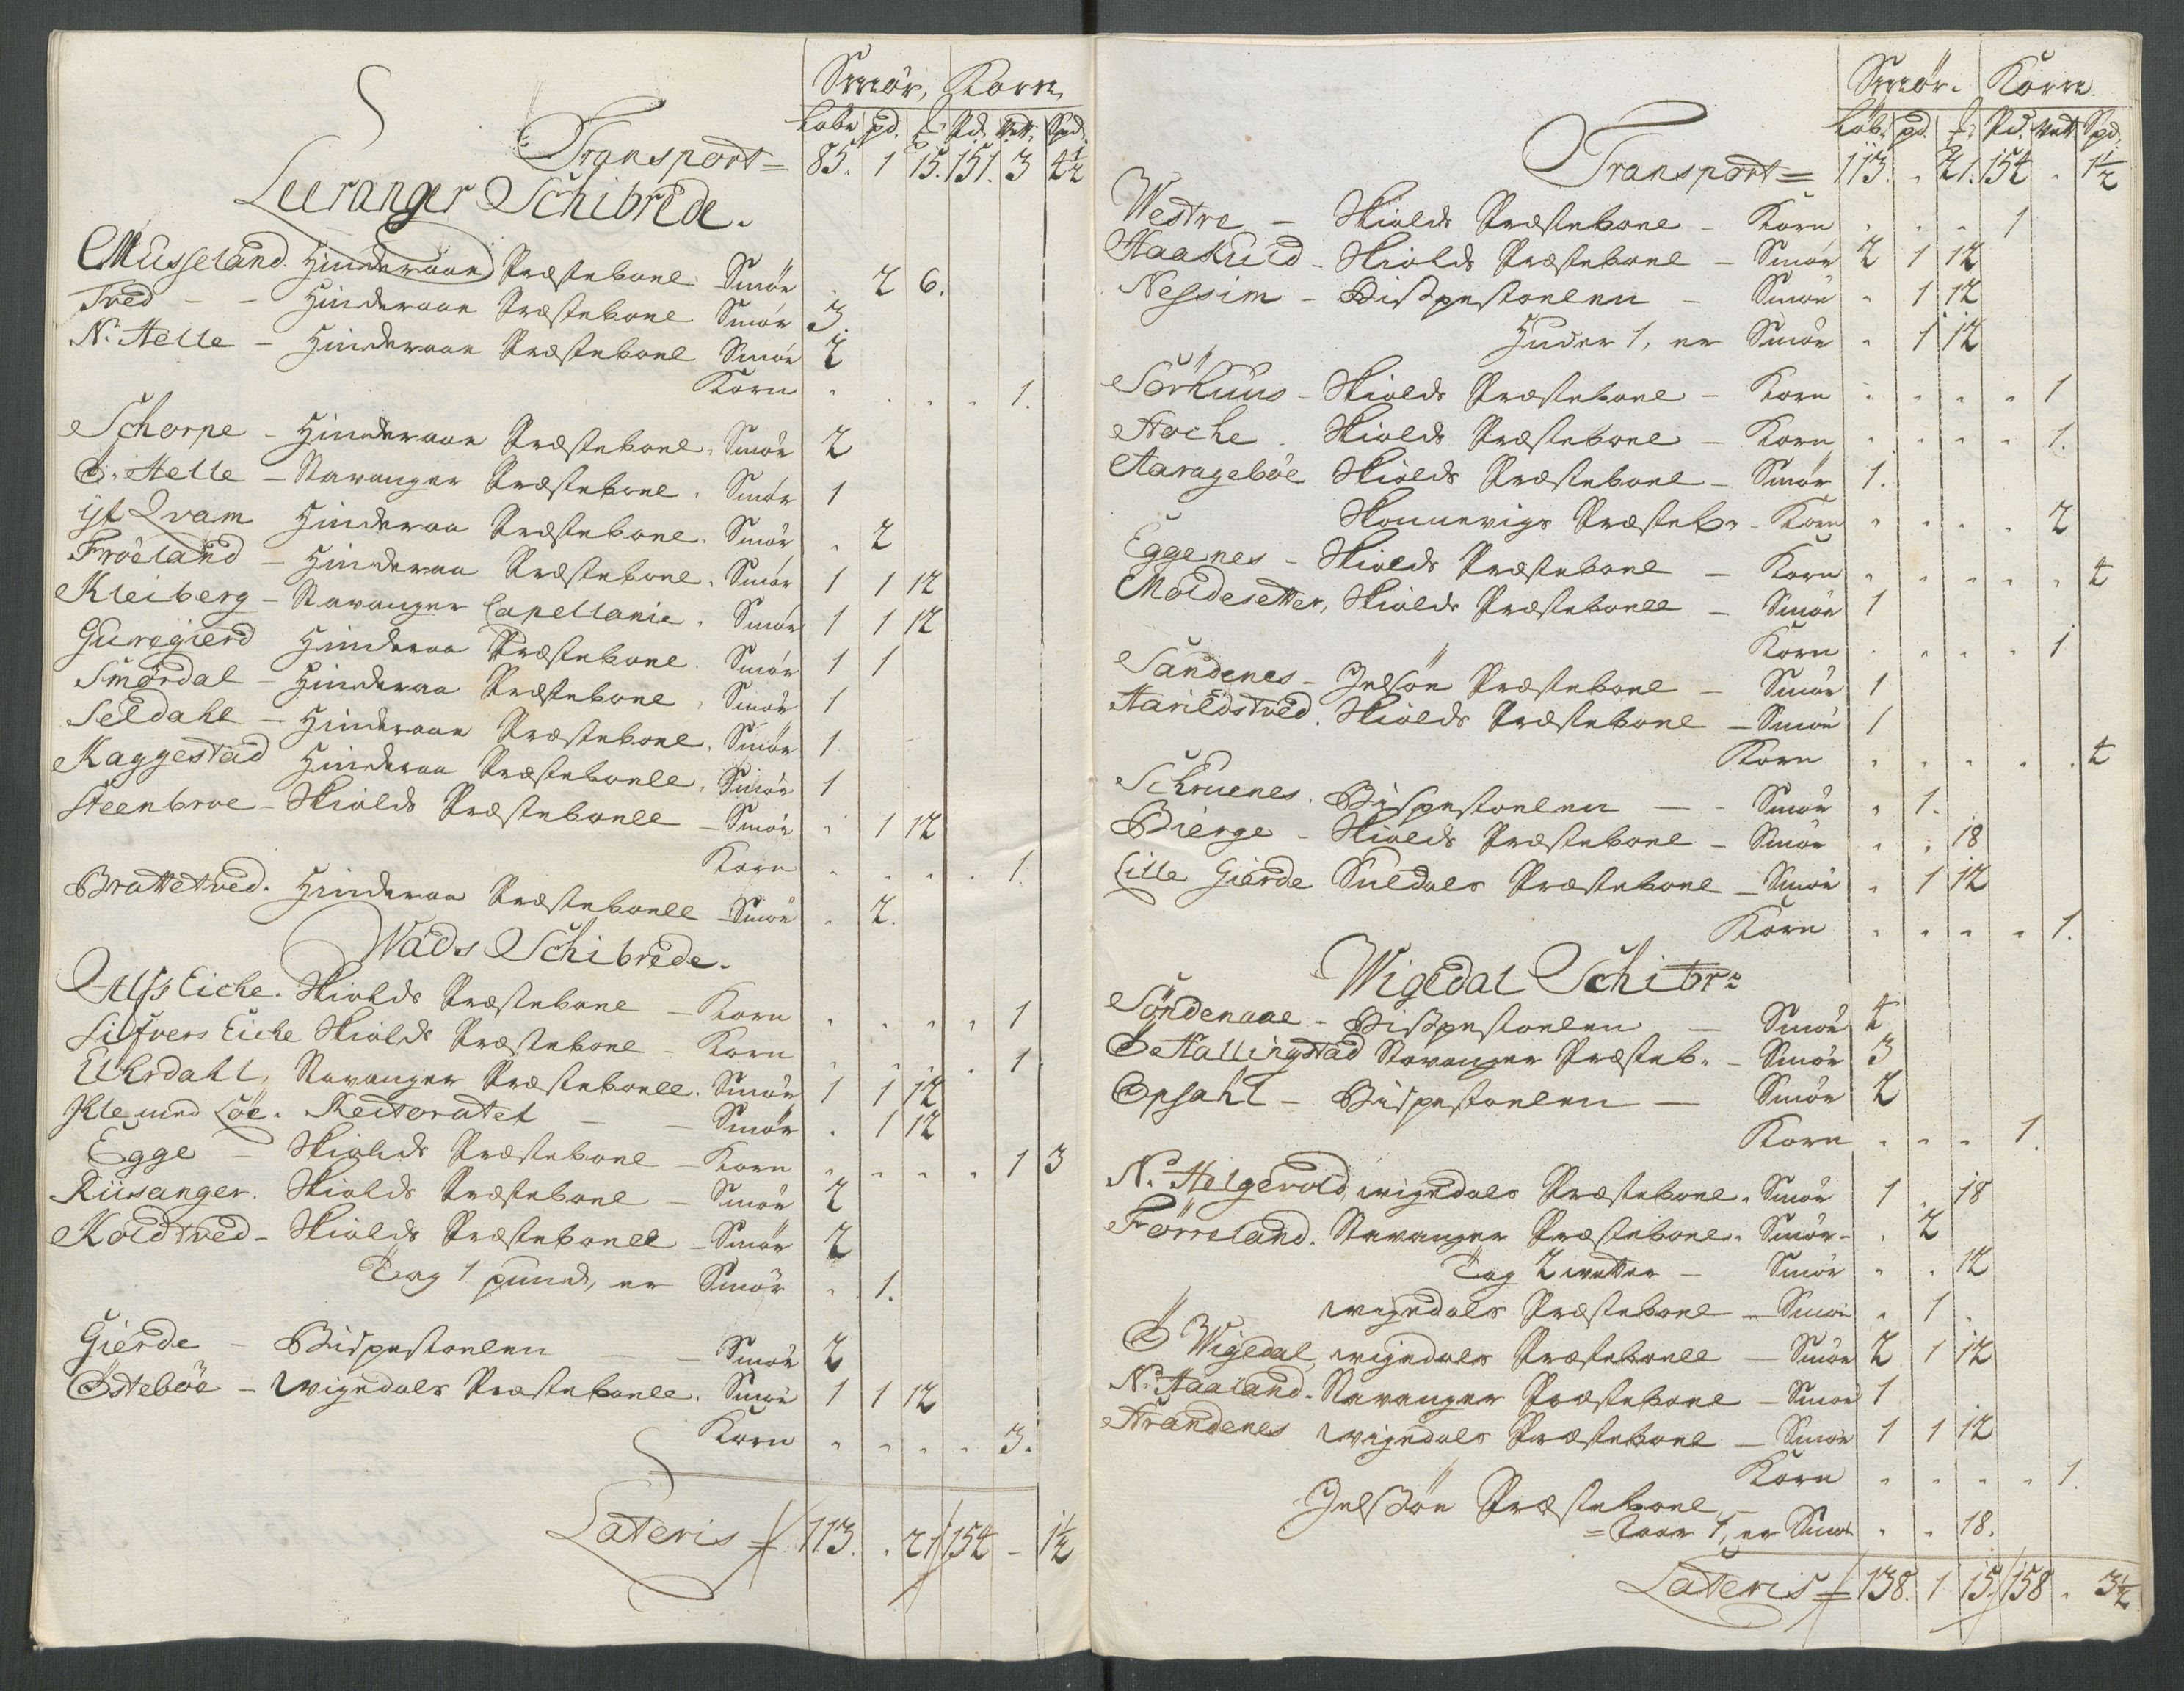 Smør, Korn,
Løbe pd. Pd. Vett. Spd.
Transport = 85. 1 15. 151. 3 4½
Leeranger Schibrede.
Musseland. Hinderaae Præstebone. Smør " 2 6.
Tved - - Hinderaae Præstebone Smør 3.
N. Helle - Hinderaae Præstebone Smør 2
Korn " . . . 1.
Schorpe - Hinderaae Præstebone. Smør 2
Ø. Helle - Stavanger Præstebone. Smør 1
yt Qvam Hinderaa Præstebone. Smør . 2
Frøeland - Hinderaa Præstebone. Smør 1 1 12
Kleiberg - Stavanger Capellanie. Smør 1 1 12
Gurogierd Hinderaa Præstebone. Smør 1 1
Smørdal - Hinderaa Præstebone. Smør 1
Seldahl - Hinderaae Præstebone. Smør 1
Kaggestad Hinderaa Præstebonell. Smør 1
Steenbroe - Skiolds Præstebonell - Smør " 1 12
Korn . . . . 1.
Brattetved. Hinderaa Præstebonell - Smør . 2.
Wads Schibrede.
Alfs Eiche. Skiolds Præstebone - Korn . . . . 1
Sifvers Eiche Skiolds Præstebone - Korn . . . . 1.
Uhrdahl, Stavanger Præstebonell. Smør 1 1 12
Hle med Löe. Rectoratet - - Smør . 1 12
Egge - Skiolds Præstebone - Korn . . . . 1 3
Riisanger. Skiolds Præstebonel - Smør 2
Koldtved - Skiolds Præstebonell - Smør 2
Tag 1 pund, er Smør " 1.
Gierde - Bispestoelen - Smør 2
Østebøe - wigedals Præstebonell. Smør 1 1 12
Korn " " " " 3.
Lateris 113. . 21 154 - 1½
Smør. Korn.
Løb. pd. Pd. Vett Spd.
Transport = 113. . 21. 154 . 1½
Westre - Skiolds Præstebonel - Korn . . . 1
Haaskuld - Skiolds Præstebonel - Smør 2 1 12
Nessim - Bispestoelen - Smør " 1 12
Huder 1, er Smør " 1 12
Sørhuus - Skiolds Præstebonel - Korn . . . . 1
Hoche. Skiolds Præstebonel - Korn . . . . 1.
Aaragebøe Skiolds Præstebonel - Smør 1.
Præsteb. - Korn " . . . 2
Eggenes - Skiolds Præstebonel - Korn . . . . . 4
Moldesetter, Skiolds Præstebonell - Smør 1
Korn . . . . 1
Sandenes - Jelsøe Præstebonel - Smør 1
Harildstved. Skiolds Præstebonel - Smør 1
Korn . . . . . 4
Schruenes. Bispestoelen - - Smør " 1.
Bierge - Skiolds Præstebonel - Smør " . 18
Lille Gierde Suldals Præstebonel - Smør " 1 12
Korn " . . . 1.
Wigedal Schibr.
Söndenaae - Bispestoelen - Smør 4
Ø Hallingstad Stavanger Præsteb. - Smør 3
Opsahl - Bispestoelen - Smør 2
Korn . . . 1.
N. Helgevold wigedals Præstebonel. Smør 1 . 18
Førreland. Stavanger Præstebonel. Smør - . 2
Tag 2 vetter - Smør " . 12
wigedals Præstebonel - Smør " 1 .
Ø Wigedal, wigedals Præstebonell - Smør 2 1 12
N. Haaland. Stavanger Præstebonel - Smør 1
wigedals Præstebonel - Smør 1 1 12
Korn " . . . 1.
Jelsøe Præstebonel -
1, er Smør " . 18.
Lateris 138. 1 15 158 . 3½